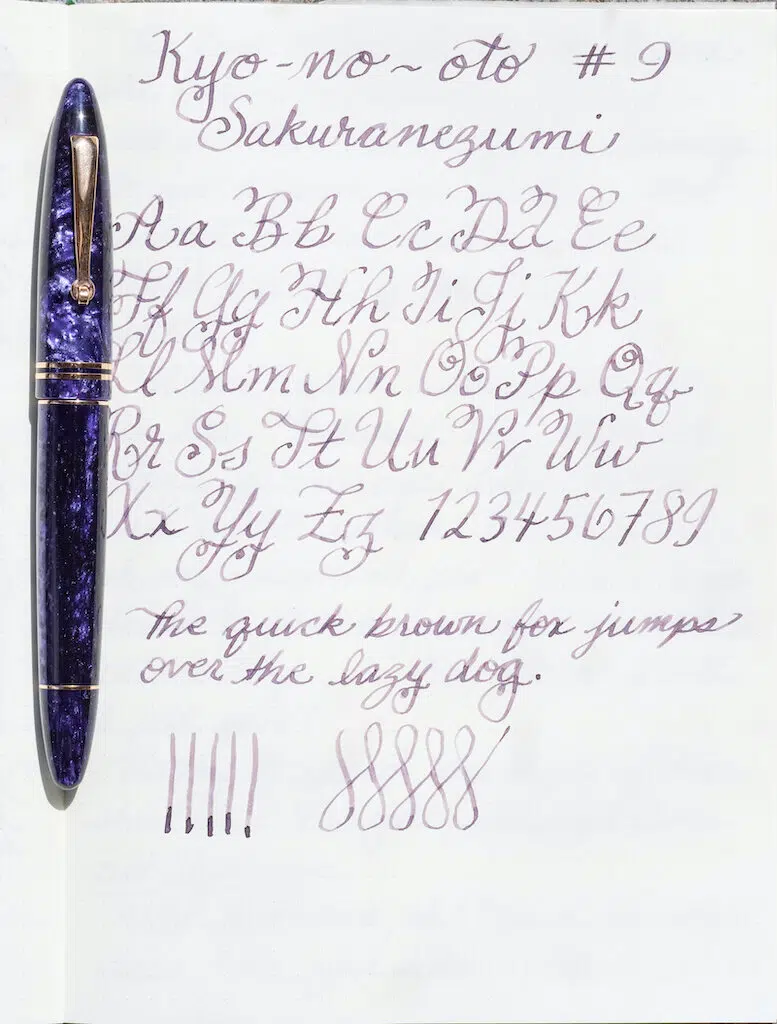 Kyo-no~oto #9
Sakuranezumi
Aa Bb Cc Dd Ee
Ff Gg Hh Ii Jj Kk
Ll Mm Nn Oo Pp Qq
Rr Ss Tt Uu Vv Ww
Xx Yy Zz 123456789
The quick brown fox jumps
over the lazy dog.